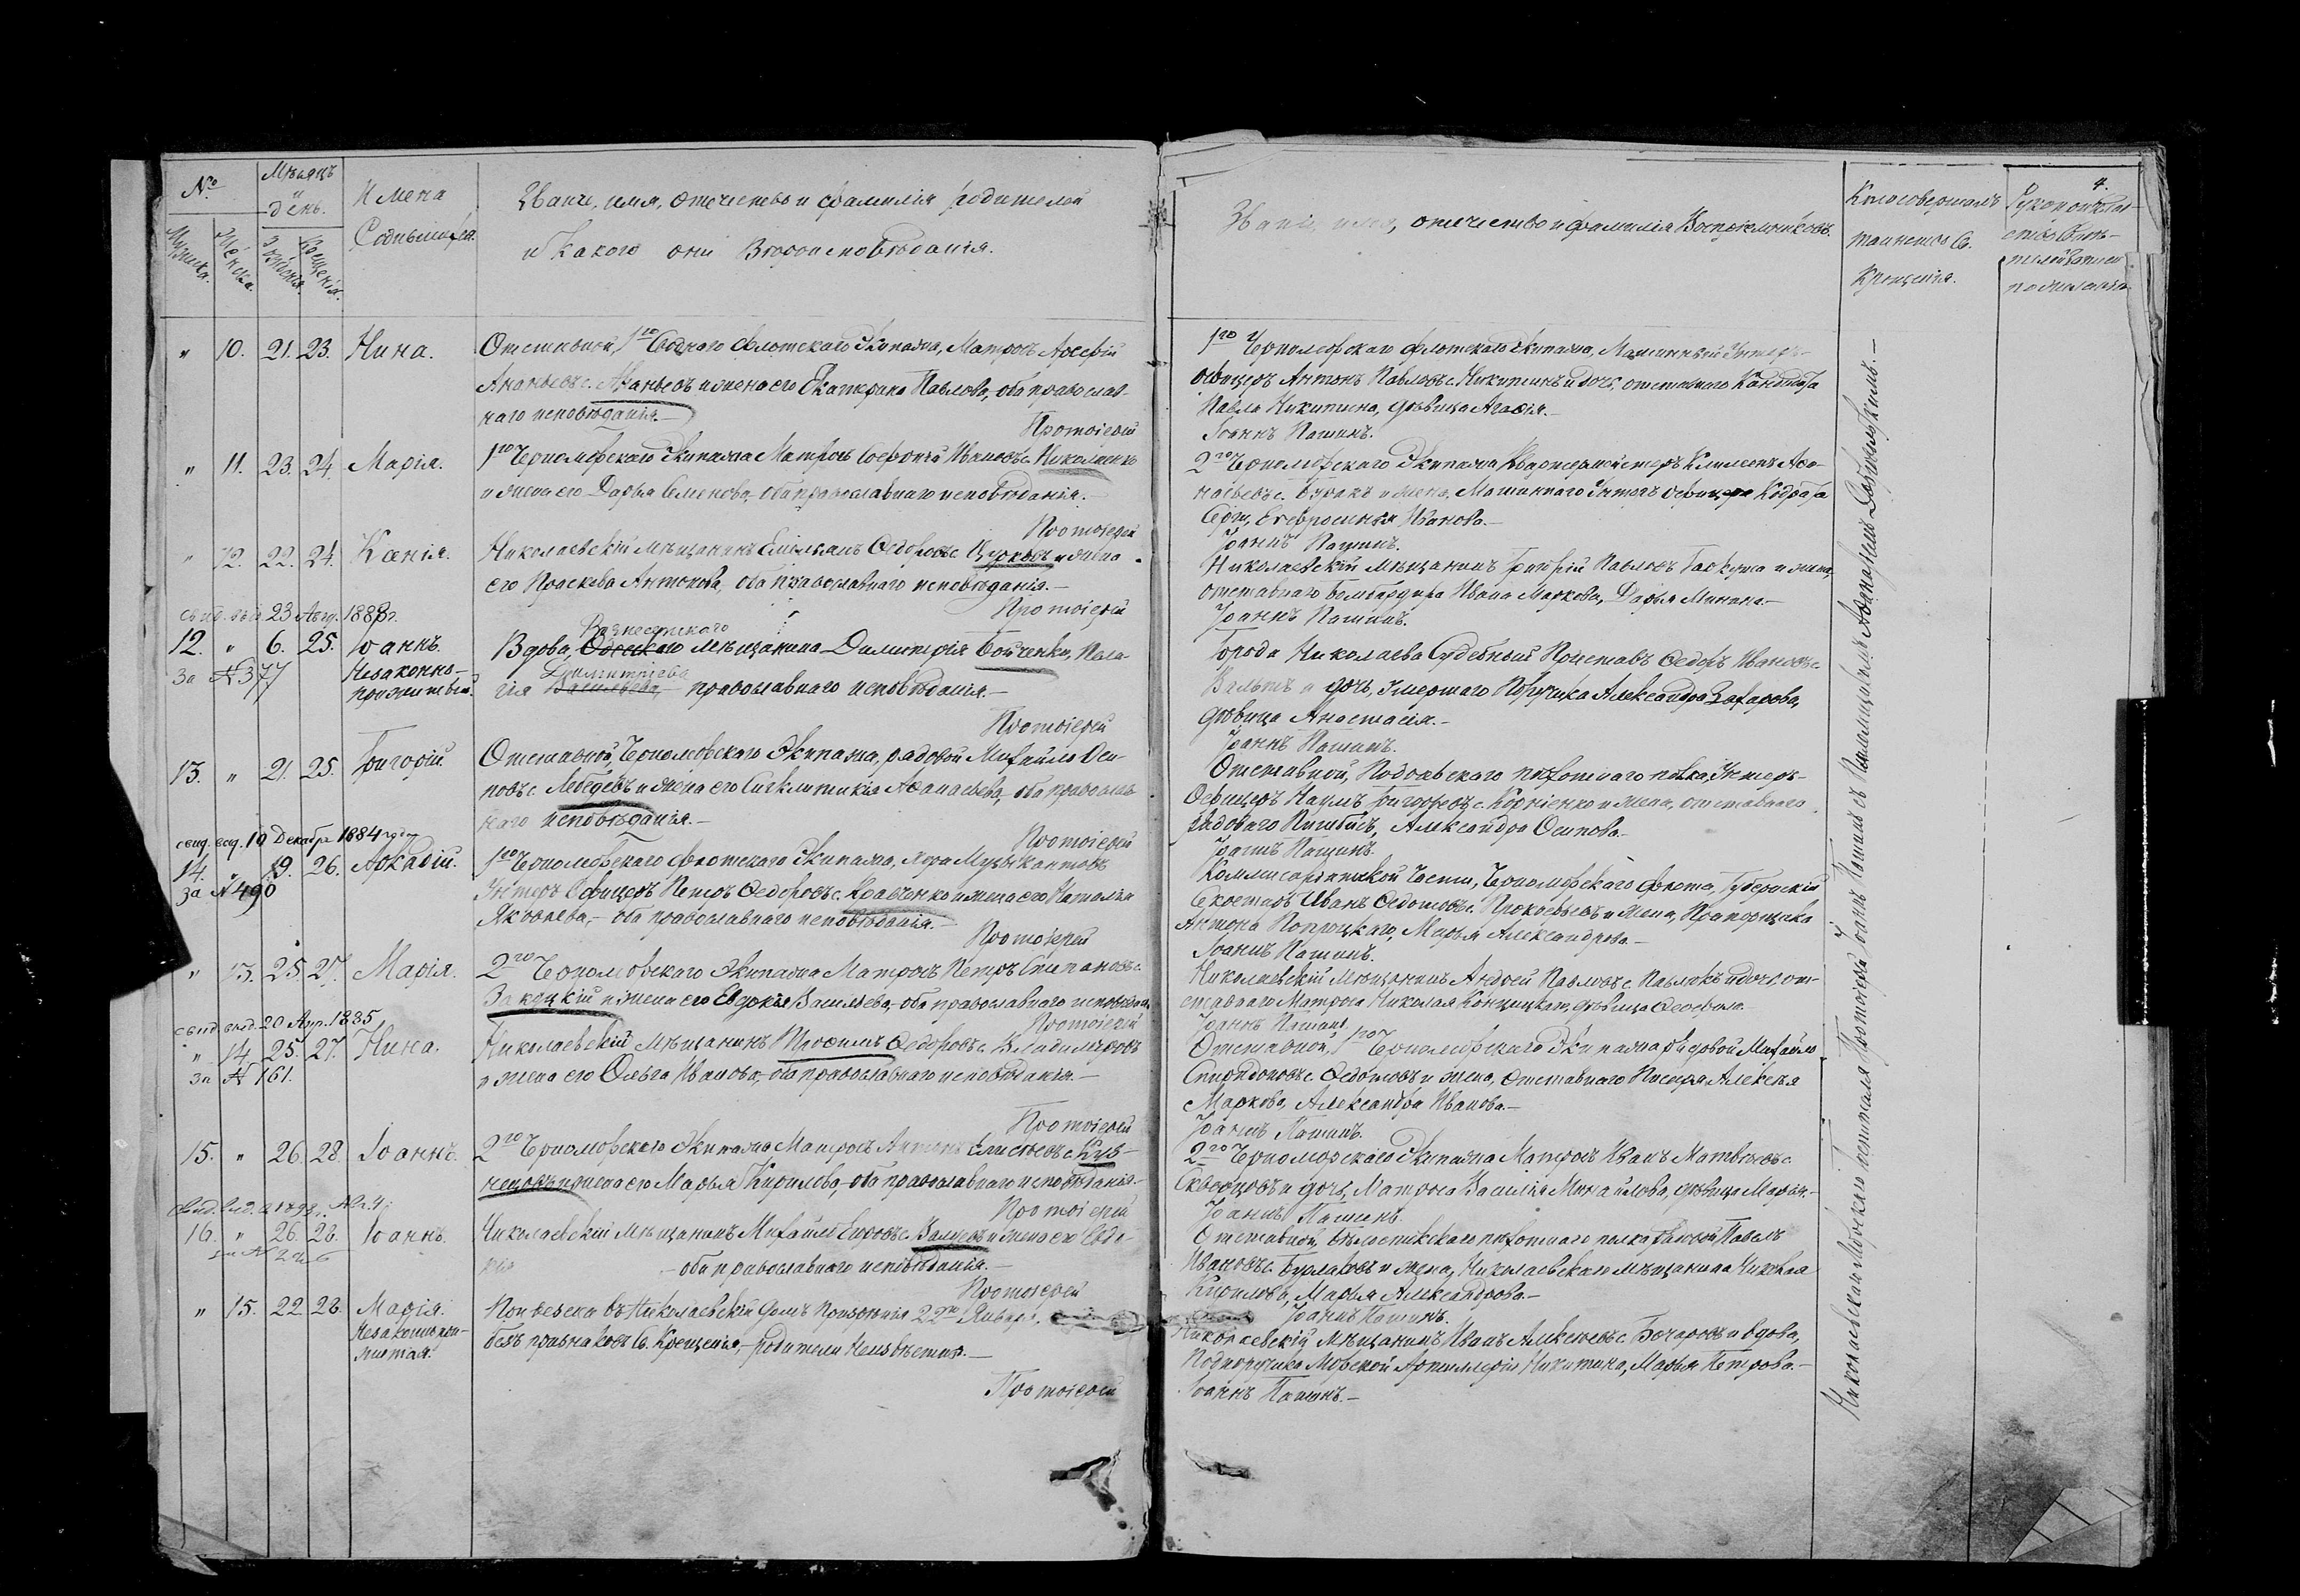 №
Мѣсяцъ
и
день.
Имена
Родившихся.
Званіе, имя, отчество и фамилія родителей
и какого они вѣроисповѣданія.
Мужска.
Женска.
Рожденія.
Крещенія.
" 10. 21. 23. Нина.
Отставной, 1го Своднаго Флотскаго Экипажа, Матросъ
Ананьевъ с. Ананьевъ и жена его Екатерина Павлова, оба православ-
наго исповѣданія.—
Протоіерей
" 11. 23. 24. Марія.
1го Черноморскаго Экипажа Матросъ Софоній Ивановъ с. Николаенко
и жена его Дарья Семенова, оба православнаго исповѣданія.—
Протоіерей
" 12. 22. 24. Ксенія.
Николаевскій мѣщанинъ Емельянъ Ѳедоровъ с. и жена
его Праскева Антонова, оба православнаго исповѣданія.—
Протоіерей
свид. выд. 23 Авгу. 1888г.
12. " 6. 25. Іоаннъ.
За № 377
Незаконно-
прижитый.
Вознесенскаго
Вдова, Одесскаго мѣщанина Димитрія Бойченки, Пела-
Димитріева
гія Васильева, православнаго исповѣданія.—
Протоіерей
13. " 21. 25. Григорій.
Отставной, Черноморскаго Экипажа, рядовой Михайло Оси-
повъ с. Лебедевъ и жена его Синклитикія Аѳанасьева, оба православ-
наго исповѣданія.—
Протоіерей
свид. выд. 10 Декабря 1884 года
14. " 19. 26. Аркадій.
За № 490
1го Черноморскаго флотскаго Экипажа, хора Музыкантовъ
Унтеръ Офицеръ Петръ Ѳедоровъ с. Кравченко и жена его Наталья
Яковлева,— оба православнаго исповѣданія.—
Протоіерей
" 13. 25. 27. Марія.
2го Черноморскаго Экипажа Матросъ Петръ Степановъ с.
и жена его Евдокія Васильева, оба православнаго исповѣдан.
Протоіерей
свид. выд. 20 Апр. 1885
" 14. 25. 27. Нина.
За № 161.
Николаевскій мѣщанинъ Ѳедоровъ с. Владиміровъ
и жена его Ольга Иванова, оба православнаго исповѣданія.—
Протоіерей
15. " 26. 28. Іоаннъ.
2го Черноморскаго Экипажа Матросъ Антонъ Елисѣевъ с. Куз-
нецовъ и жена его Марья Кирилова, оба православнаго исповѣданія.—
Протоіерей
16. " 26. 28. Іоаннъ.
Николаевскій мѣщанинъ Михайло и жена его Евдо-
кія — оба православнаго исповѣданія.—
Протоіерей
" 15. 22. 28. Марія.
Незаконнопри-
житая.
Принесена въ Николаевскій Домъ Призрѣнія 22го Января,
безъ признаковъ Св. Крещенія,— родители неизвѣстны.—
Протоіерей
4.
Званіе, имя, отчество и фамилія Воспріемниковъ.
Кто совершалъ
таинство Св.
Крещенія.
Рукоприклад-
ство свидѣ-
телей записи
по желанію.
1го Черноморскаго флотскаго Экипажа, Машинный Унтеръ-
офицеръ Антонъ Павловъ с. Никитинъ и дочь, отставнаго Кандидата
Павла Никитина, дѣвица Агафія.—
Іоаннъ Пашинъ.
2го Черноморскаго Экипажа Квартирмейстеръ Климентъ Аѳа-
насьевъ с. Буракъ и жена, Машиннаго Унтеръ офицера
Ефросинья Иванова.—
Іоаннъ Пашинъ.
Николаевскій мѣщанинъ Григорій Павловъ и жена,
отставнаго Бомбардира Ивана Маркова, Дарья Минаева.—
Іоаннъ Пашинъ.
Города Николаева Судебный Приставъ Ѳедоръ Ивановъ с.
и дочь, умершаго Поручика Александра Захарова,
дѣвица Анастасія.—
Іоаннъ Пашинъ.
Отставной, Подольскаго пѣхотнаго полка, Унтеръ-
Офицеръ Наумъ Григорьевъ с. Корніенко и жена, отставнаго
рядоваго Александра Осипова.—
Іоаннъ Пашинъ.
Коммисаріатской части, Черноморскаго флота, Губернскій
Секретарь Иванъ Ѳедотовъ с. Прокофьевъ и жена, Прапорщика
Антона Марья Александрова.—
Іоаннъ Пашинъ.
Николаевскій мѣщанинъ Андрей Павловъ с. Павлюкъ и дочь, от-
ставнаго Матроса Николая дѣвица Ѳеофила.
Іоаннъ Пашинъ
Отставной, 1го Черноморскаго Экипажа рядовой Михайло
Спиридоновъ с. Ѳедотовъ и жена, Отставнаго Писаря Алексѣя
Маркова, Александра Иванова.—
Іоаннъ Пашинъ.
2го Черноморскаго Экипажа Матросъ Иванъ Матвѣевъ с.
Скворцовъ и дочь, Матроса Василія Михайлова, дѣвица Марья.—
Іоаннъ Пашинъ.
Отставной, Бѣлостокскаго пѣхотнаго полка рядовой Павелъ
Ивановъ с. Бурлаковъ и жена, Николаевскаго мѣщанина Николая
Кирилова, Марья Александрова.—
Іоаннъ Пашинъ.
Николаевскій мѣщанинъ Иванъ Алексѣевъ с. Бочаровъ и вдова,
Подпоручика Морской Артиллеріи Никитина, Марья Петрова.—
Іоаннъ Пашинъ.—
Николаевскаго Морскаго Госпиталя Протоіерей Іоаннъ Пашинъ съ Псаломщикомъ Аѳанасіемъ Добровольскимъ.—